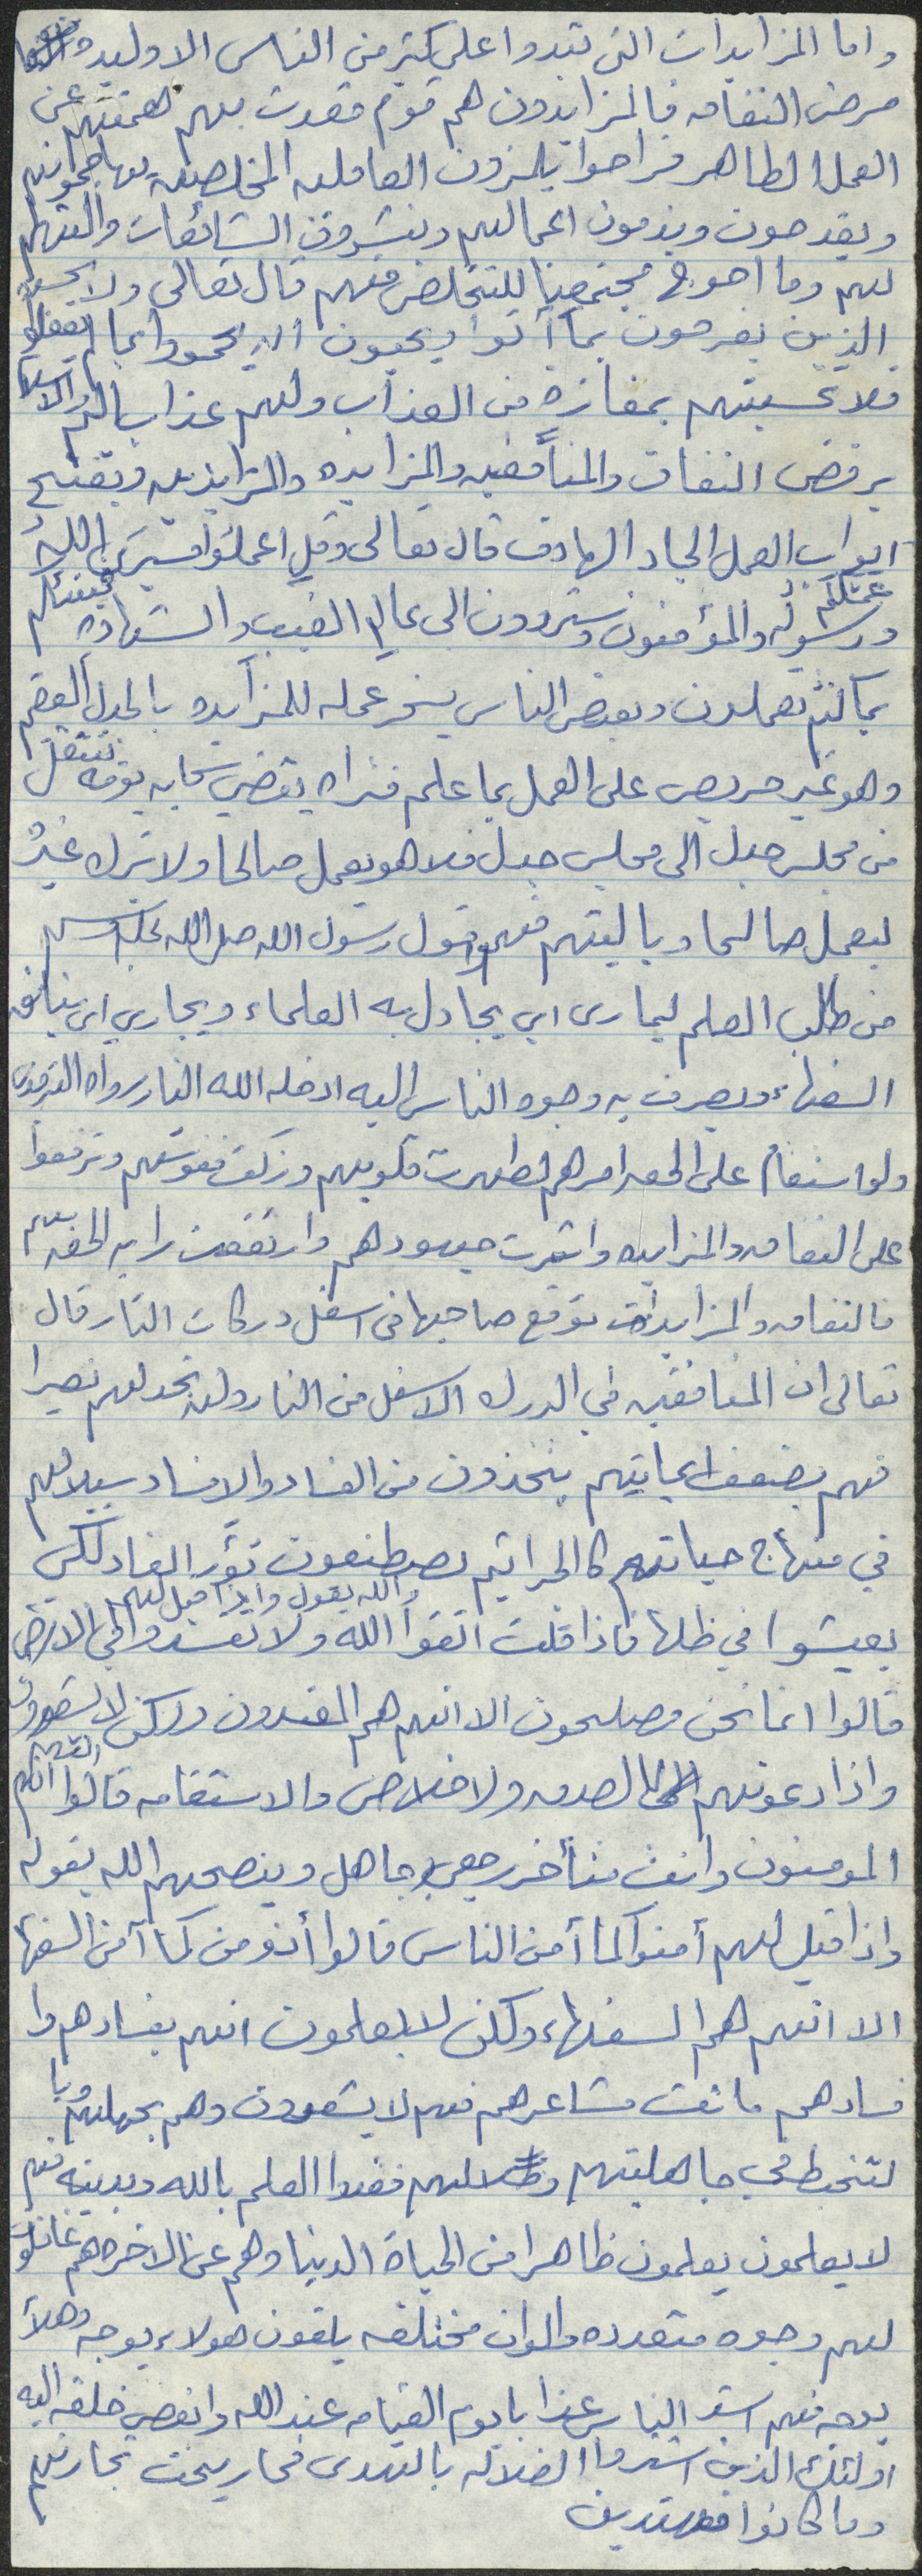 واما المزايدات التي تبدوا على كثير من الناس الا وليده
مرض النفاق فالمزايدون هم قوم قعدت بهم هممهم عن
العمل الطاهر فراحوا يلمزون العاملين المخلصين يهاجمونهم
ويقدحون ويذمون اعمالهم وينشرون الشائعات والتهم
لهم وما احوج مجتمعنا للتخلص منهم قال تعالى ولا تحسبن
الذين يفرحون بما أتوا ويحبون ان يحمدوا بما لم يفعلوا
فلا تحسبنهم بمفازة من العذاب ولهم عذاب اليم والاسلام
يرفض النفاق والمنافقين والمزايده والمزايدين ويفتح
ابواب العمل الجاد الهادف قال تعالى وقل اعملوا فسيرى الله
عملكم ورسوله والمؤمنون وستردون الى عالم الغيب والشهاده فينبئكم
بما كنتم تعملون وبعض الناس يسخر عمله للمزايده بالجدل العقيم
وهو غير حريص على العمل بما علم فتراه يقضي سحابه يومه تنتقل
من مجلس جدل الى مجلس جدل فلا هو يعمل صالحا ولا ترك غيره
ليعمل صالحا وياليتهم فهموا قول رسول الله صلى الله عليه وسلم
من طلب العلم ليمارى اي يجادل به العلماء ويجاري اي ينافق
السفهاء ويصرف به وجوه الناس اليه ادخله الله النار رواه الترمذي
ولو استقام على الحق امرهم لطهرت قلوبهم وزكت نفوسهم وترفعوا
على النفاق والمزايده واثمرت جهودهم وارتفعت راية الحق بهم
فالنفاق والمزايدات توقع صاحبها في اسفل دركات النار قال
تعالى ان المنافقين في الدرك الاسفل من النار ولن تجد لهم نصيرا
فهم بضعف ايمانهم يتخذون من الفساد والافساد سبيلا لهم
في منهاج حياتهم كالجراثيم يصطنعون بؤر الفساد لكي
يعيشوا في ظلها فاذا قلت اتقوا الله والله يقول واذا قيل لهم ولا تفسدوا في الارض
قالوا انما نحن مصلحون الا انهم هم المفسدون ولكن لا يشعرون
واذا دعوتهم الى الصدق والاخلاص والاستقامه قالوا انهم
المومنون وانت متأخر رجعي وجاهل وينصحهم الله بقوله
واذا قيل لهم أمنوا كما أمن الناس قالوا أنؤمن كما آمن السفها
الا انهم هم السفهاء ولكن لا يعلمون انهم بفسادهم وا
فسادهم ماتت مشاعرهم فهم لا يشعرون وهم بجهلهم
لتخبط في جاهليتهم وضلالهم فقدوا العلم بالله وبدينه فهم
لا يعلمون يعلمون ظاهرا من الحياة الدنيا وهم عن الاخره هم غافلون
لهم وجوه متعدده والوان مختلفه يلقون هولاء بوجه وهلآ
بوجه فهم اشد الناس عذابا يوم القيامه عند الله وابغض خلقه اليه
اولئك الذين اشتروا الضلاله بالهدى فما ربحت تجارتهم
وما كانوا مهتدين